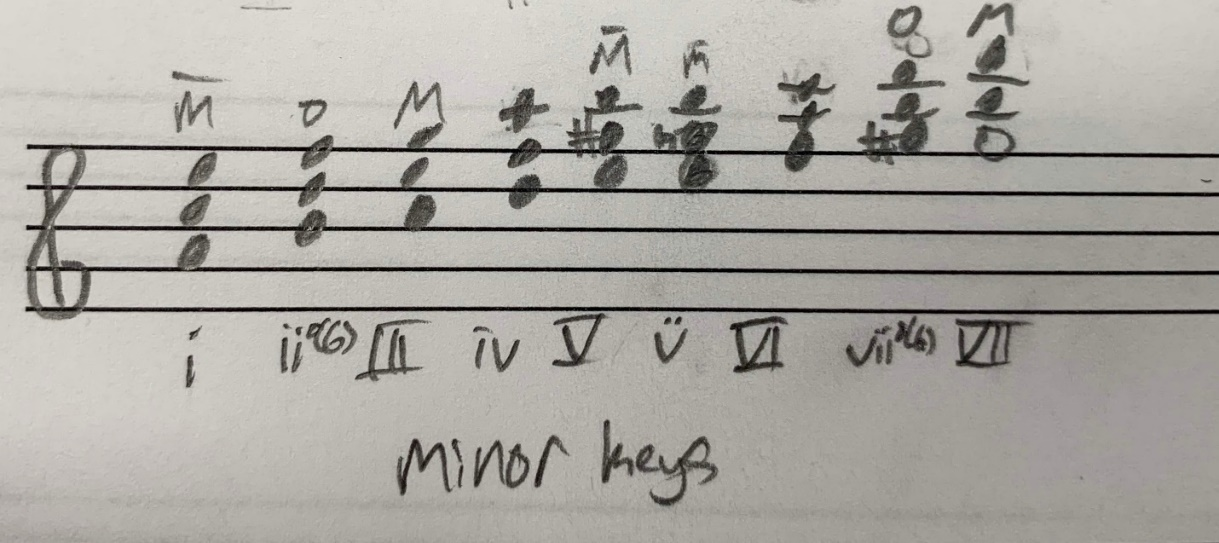 M o M M m o M
i ii°(6) III iv V v VI vii°(6) VII
Minor keys